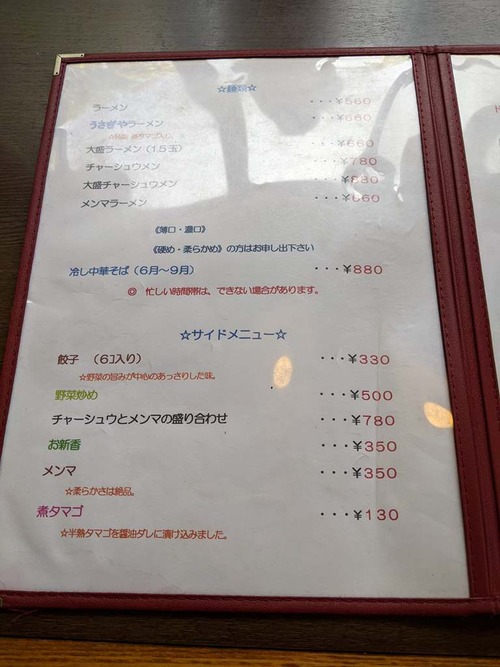 ☆麺類☆
ラーメン ・・・￥560
うさぎやラーメン ・・・￥660
大盛ラーメン（1.5玉） ・・・￥660
チャーシュウメン ・・・￥780
大盛チャーシュウメン ・・・￥880
メンマラーメン ・・・￥660
《薄口・濃口》
《硬め・柔らかめ》の方はお申し出下さい
冷し中華そば（６月～９月） ・・・￥880
◎ 忙しい時間帯は、できない場合があります。
☆サイドメニュー☆
餃子 （６コ入り） ・・・￥330
☆野菜の旨みが中心のあっさりした味。
野菜炒め ・・・￥500
チャーシュウとメンマの盛り合わせ ・・・￥780
お新香 ・・・￥350
メンマ ・・・￥350
☆柔らかさは絶品。
煮タマゴ ・・・￥130
☆半熟タマゴを醤油ダレに漬け込みました。